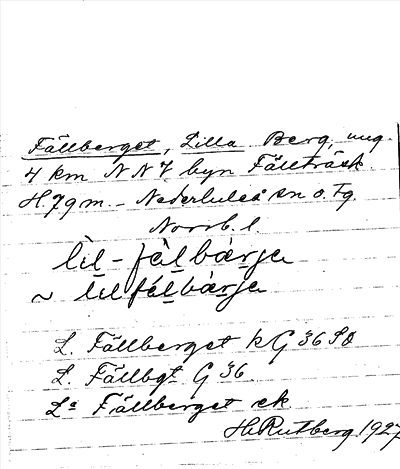 Fällberget, Lilla Berg, ung.
4 km NNV byn Fällträsk.
H79m. – Nederluleå sn o. Fg.
Norrb. l.
lìl-fàlbærja
~ lìlfàlbærja
L. Fällberget kG 36 SO
L. Fällbgt G 36
La Fällberget ek
H. Rutberg 1927